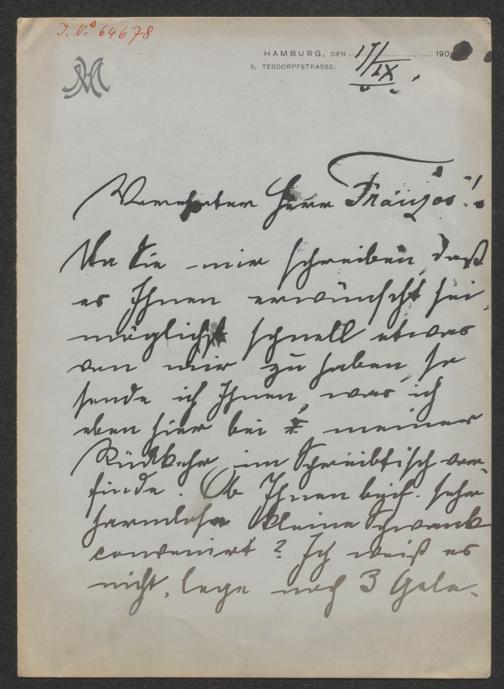 J. No 64678
HAMBURG, DEN 17/IX. 190
9, TESDORPFSTRASSE.
Verehrter Herr Franzos!
Da Sie mir schreiben, daß
es Ihnen erwünscht sei
möglichst schnell etwas
von mir zu haben, so
sende ich Ihnen, was ich
eben hier bei meiner
Rückkehr im Schreibtisch vor-
finde. Ob Ihnen beif. sehr
harmlose kleine Schwank
convenirt? Ich weiß es
nicht, lege noch 3 Gele-